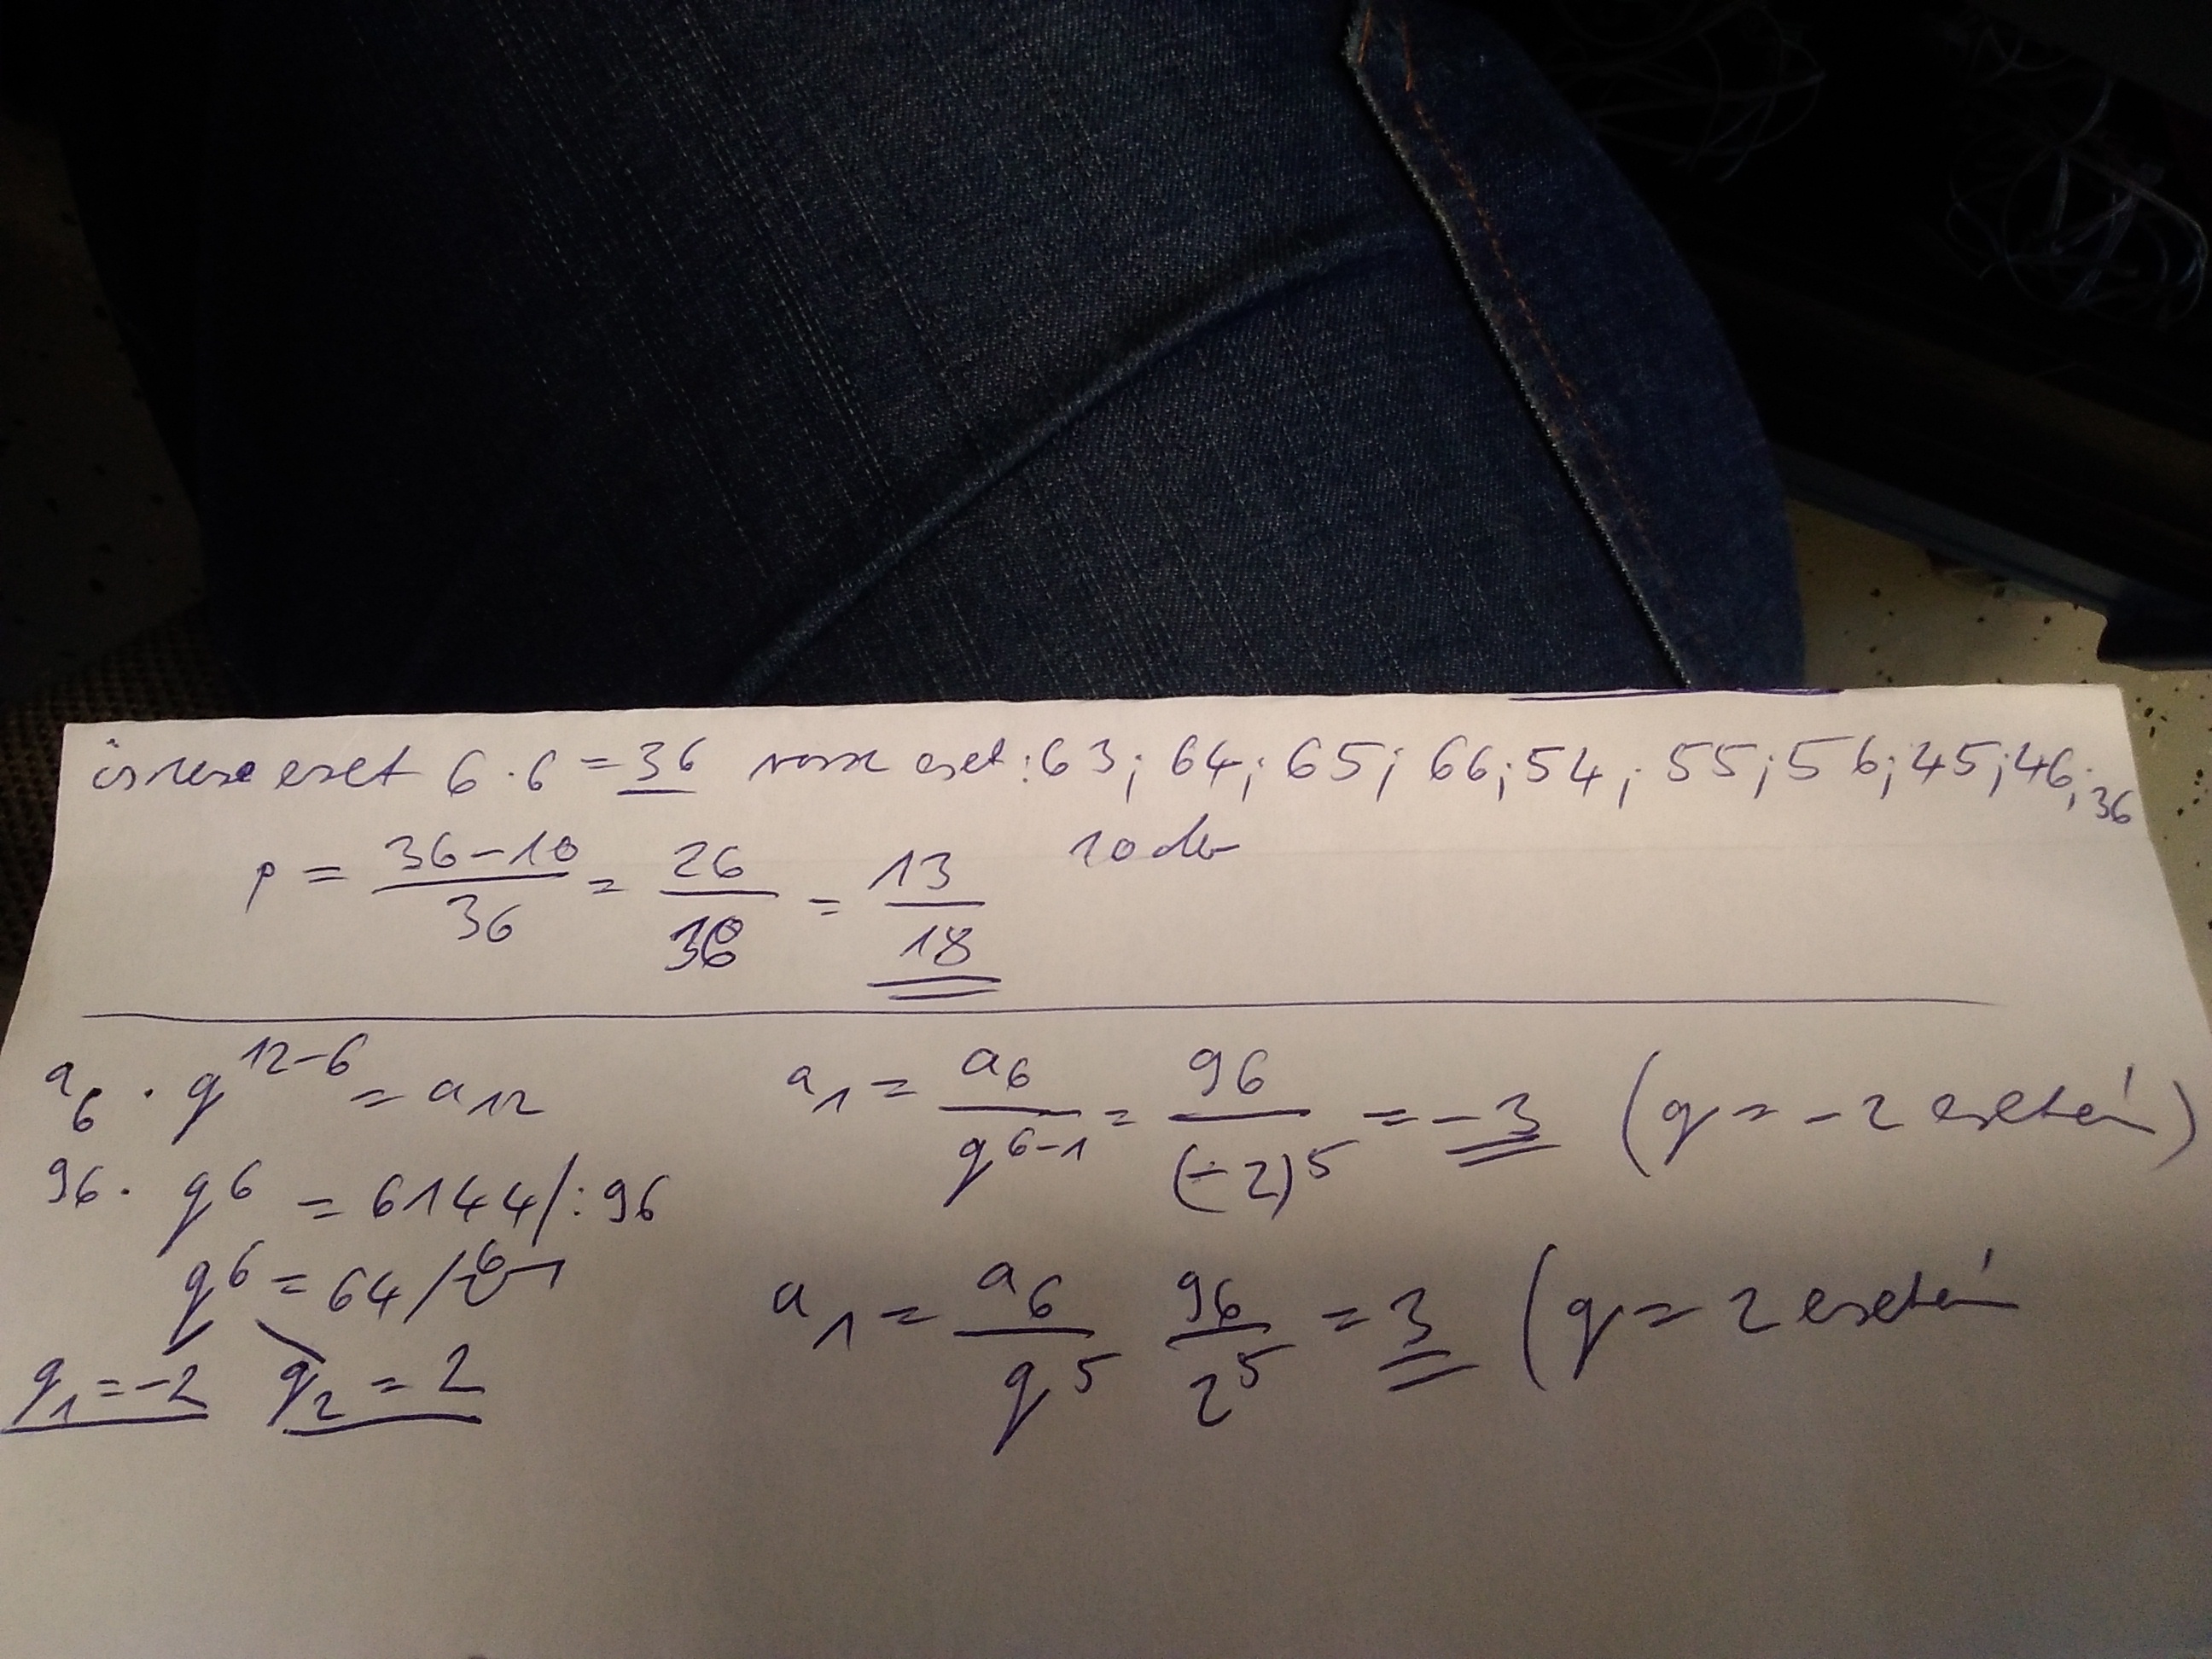 összese eset 6 · 6 = 36 rossz eset: 63; 64; 65; 66; 54; 55; 56; 45; 46; 36
10 db
p = (36-10)/36 = 26/36 = 13/18
a₆ · q¹²⁻⁶ = a₁₂
96 · q⁶ = 6144 /: 96
q⁶ = 64 / ⁶√
q₁ = -2 q₂ = 2
a₁ = a₆/q⁶⁻¹ = 96/(-2)⁵ = -3 (q = -2 esetén)
a₁ = a₆/q⁵ 96/2⁵ = 3 (q = 2 esetén